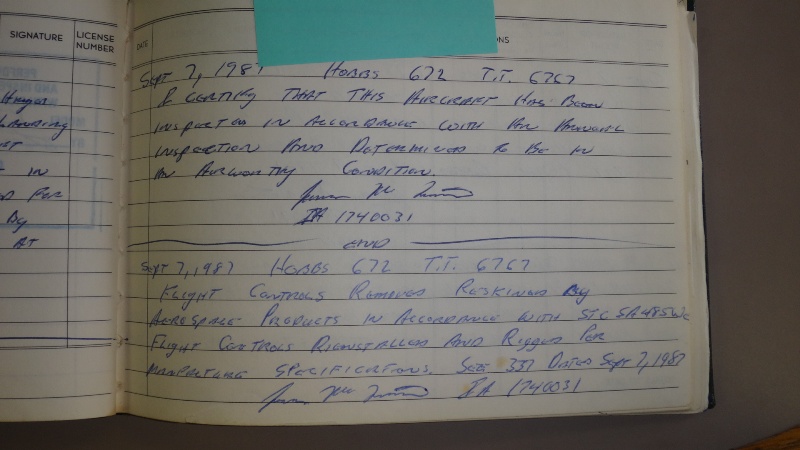 SIGNATURE
LICENSE
NUMBER
DATE
IN
FOR
By
AT
Sept 7, 1987 HOBBS 672 T.T. 6767
I CERTIFY THAT THIS AIRCRAFT HAS BEEN
INSPECTED IN ACCORDANCE WITH AN ANNUAL
INSPECTION AND DETERMINED TO BE IN
AN AIRWORTHY CONDITION.
IA 1740031
END
SEPT 7, 1987 HOBBS 672 T.T. 6767
FLIGHT CONTROLS REMOVED RESKINED By
AEROSPACE PRODUCTS IN ACCORDANCE WITH STC SA485WE
FLIGHT CONTROLS REINSTALLED AND RIGGED PER
SPECIFICATIONS. SEE 337 DATED SEPT 7, 1987
IA 1740031